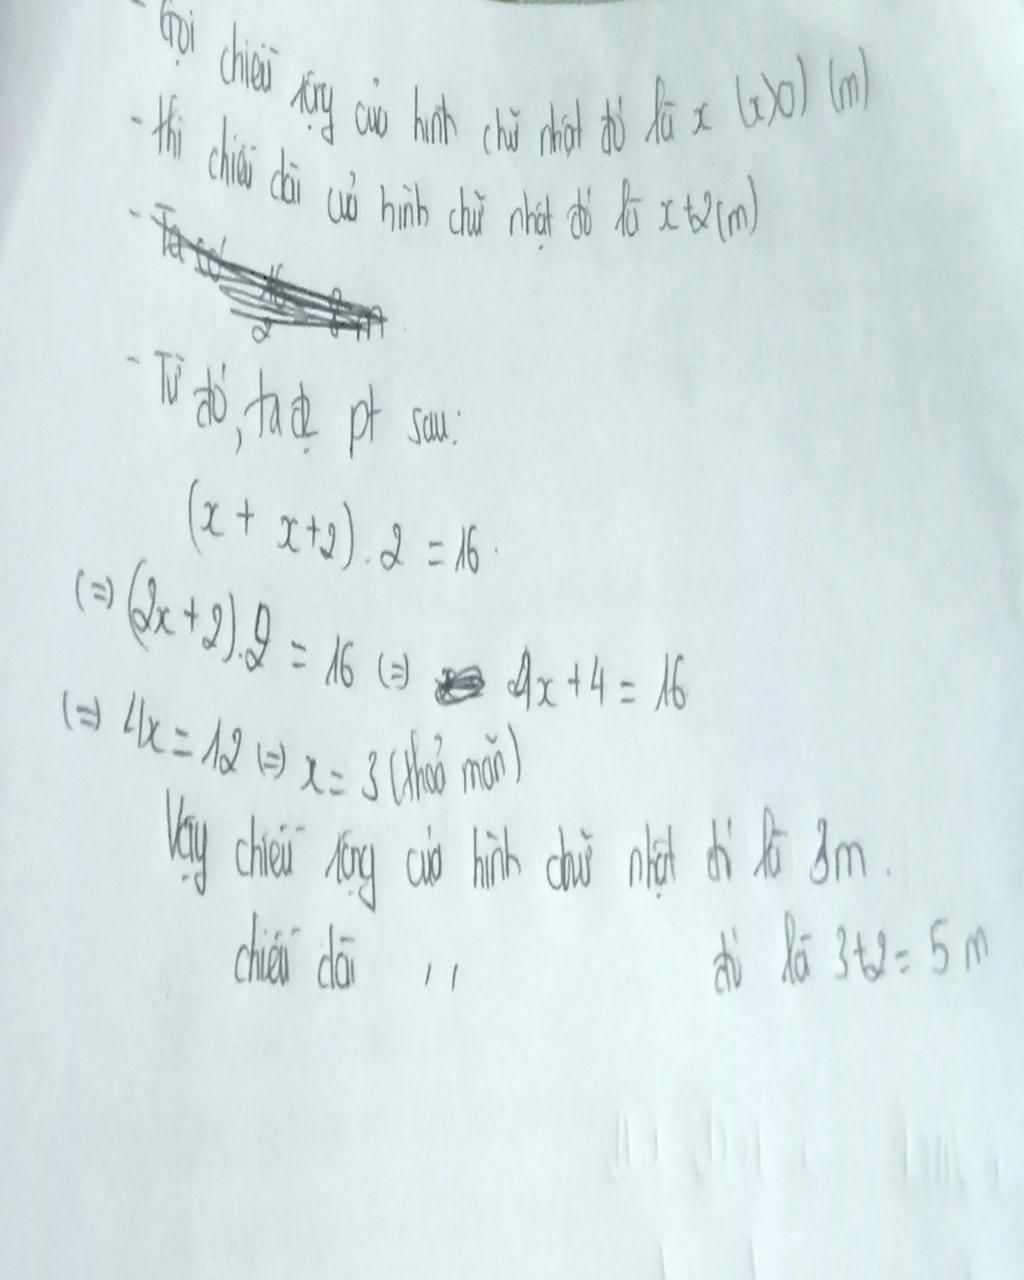 - Gọi chiều rộng của hình chữ nhật đó là x (x>0) (m)
- thì chiều dài của hình chữ nhật đó là x+2(m)
- Từ đó, ta đc pt sau:
(x + x+2). 2 = 16.
(=) (2x+2).2 = 16 (=) 4x+4 = 16
(=) 4x = 12 (=) x = 3 (thoả mãn)
Vậy chiều rộng của hình chữ nhật đó là 3m.
chiều dài ,, đó là 3+2= 5 m